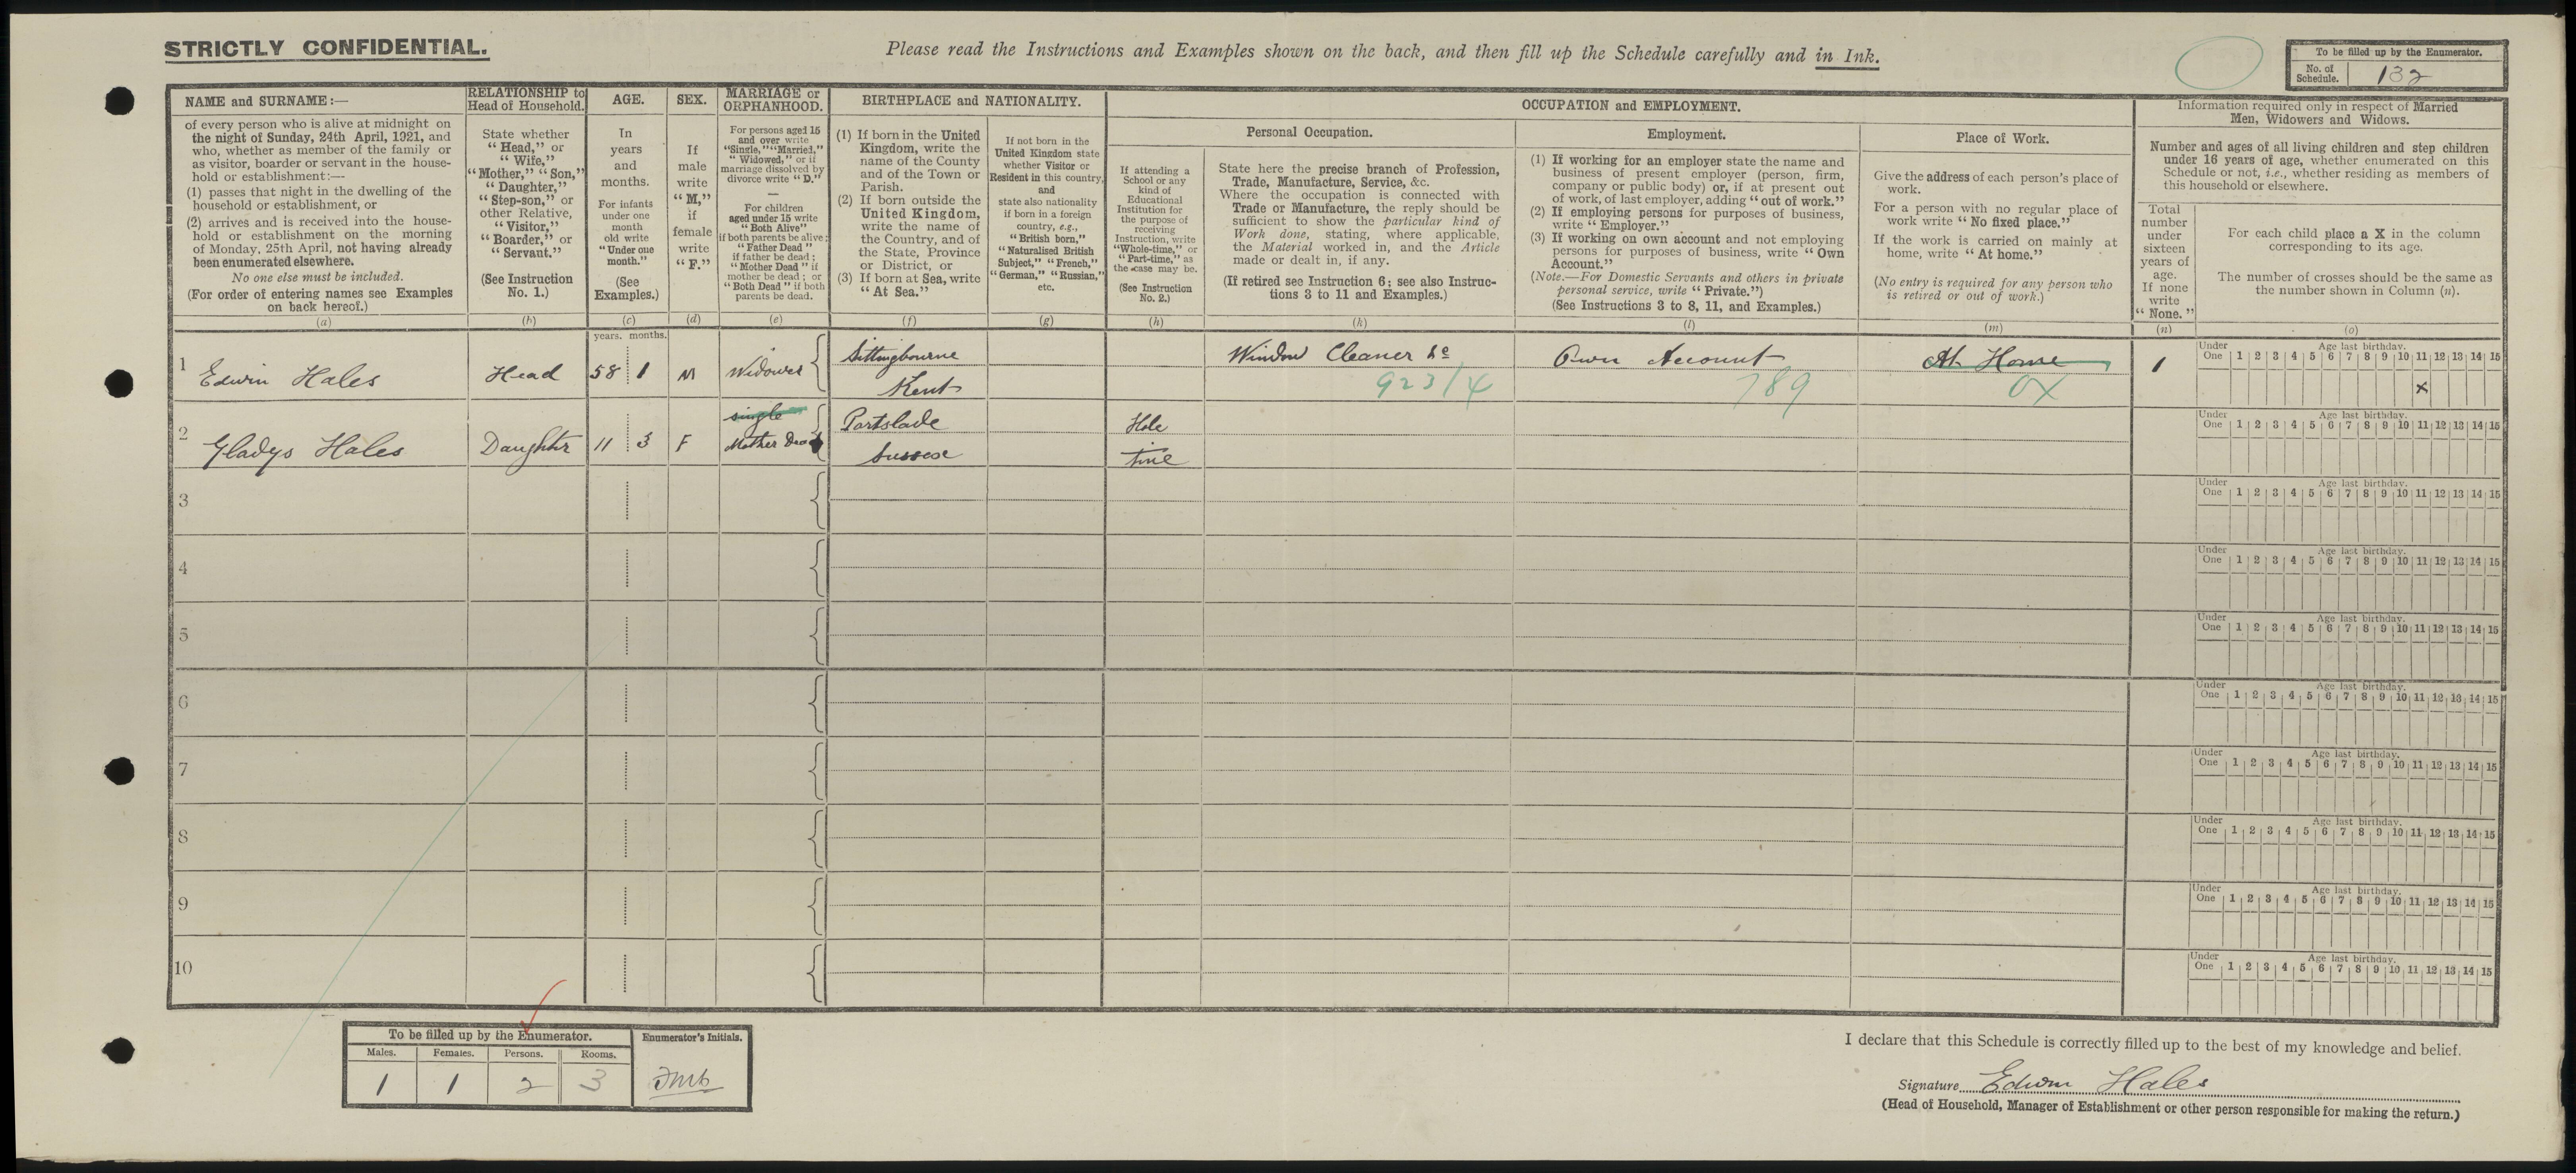 STRICTLY CONFIDENTIAL.
Please read the Instructions and Examples shown on the back, and then fill up the Schedule carefully and in Ink.
To be filled up by the Enumerator.
No. of Schedule. 132
NAME and SURNAME :—
of every person who is alive at midnight on
the night of Sunday, 24th April, 1921, and
who, whether as member of the family or
as visitor, boarder or servant in the house-
hold or establishment :—
(1) passes that night in the dwelling of the
household or establishment, or
(2) arrives and is received into the house-
hold or establishment on the morning
of Monday, 25th April, not having already
been enumerated elsewhere.
No one else must be included.
(For order of entering names see Examples
on back hereof.)
(a)
RELATIONSHIP to
Head of Household.
State whether
“Head,” or
“Wife,”
“Mother,” “Son,”
“Daughter,”
“Step-son,” or
other Relative,
“Visitor,”
“Boarder,” or
“Servant.”
(See Instruction
No. 1.)
(b)
AGE.
In
years
and
months.
For infants
under one
month
old write
“Under one
month.”
(See
Examples.)
(c)
SEX.
If
male
write
“M,”
if
female
write
“F.”
(d)
MARRIAGE or
ORPHANHOOD.
For persons aged 15
and over write
“Single,” “Married,”
“Widowed,” or if
marriage dissolved by
divorce write “D.”
—
For children
aged under 15 write
“Both Alive”
if both parents be alive ;
“Father Dead”
if father be dead ;
“Mother Dead” if
mother be dead ; or
“Both Dead” if both
parents be dead.
(e)
BIRTHPLACE and NATIONALITY.
(1) If born in the United
Kingdom, write the
name of the County
and of the Town or
Parish.
(2) If born outside the
United Kingdom,
write the name of
the Country, and of
the State, Province
or District, or
(3) If born at Sea, write
“At Sea.”
(f)
If not born in the
United Kingdom state
whether Visitor or
Resident in this country,
and
state also nationality
if born in a foreign
country, e.g.,
“British born,”
“Naturalised British
Subject,” “French,”
“German,” “Russian,”
etc.
(g)
OCCUPATION and EMPLOYMENT.
Personal Occupation.
If attending a
School or any
kind of
Educational
Institution for
the purpose of
receiving
Instruction, write
“Whole-time,” or
“Part-time,” as
the case may be.
(See Instruction
No. 2.)
(h)
State here the precise branch of Profession,
Trade, Manufacture, Service, &c.
Where the occupation is connected with
Trade or Manufacture, the reply should be
sufficient to show the particular kind of
Work done, stating, where applicable,
the Material worked in, and the Article
made or dealt in, if any.
(If retired see Instruction 6 ; see also Instruc-
tions 3 to 11 and Examples.)
(k)
Employment.
(1) If working for an employer state the name and
business of present employer (person, firm,
company or public body) or, if at present out
of work, of last employer, adding “out of work.”
(2) If employing persons for purposes of business,
write “Employer.”
(3) If working on own account and not employing
persons for purposes of business, write “Own
Account.”
(Note.—For Domestic Servants and others in private
personal service, write “Private.”)
(See Instructions 3 to 8, 11, and Examples.)
(l)
Place of Work.
Give the address of each person's place of
work.
For a person with no regular place of
work write “No fixed place.”
If the work is carried on mainly at
home, write “At home.”
(No entry is required for any person who
is retired or out of work.)
(m)
Information required only in respect of Married
Men, Widowers and Widows.
Number and ages of all living children and step children
under 16 years of age, whether enumerated on this
Schedule or not, i.e., whether residing as members of
this household or elsewhere.
Total
number
under
sixteen
years of
age.
If none
write
“None.”
(n)
For each child place a X in the column
corresponding to its age.
The number of crosses should be the same as
the number shown in Column (n).
(o)
years. months.
1 Edwin Hales Head 58 1 M Widower Sittingbourne Kent Window Cleaner Own Account At Home 1
923/4 789 OX
Under One Age last birthday. 1 2 3 4 5 6 7 8 9 10 11 12 13 14 15
x
2 Gladys Hales Daughter 11 3 F single Mother Dead Portslade Sussex Hole time
Under One Age last birthday. 1 2 3 4 5 6 7 8 9 10 11 12 13 14 15
3
Under One Age last birthday. 1 2 3 4 5 6 7 8 9 10 11 12 13 14 15
4
Under One Age last birthday. 1 2 3 4 5 6 7 8 9 10 11 12 13 14 15
5
Under One Age last birthday. 1 2 3 4 5 6 7 8 9 10 11 12 13 14 15
6
Under One Age last birthday. 1 2 3 4 5 6 7 8 9 10 11 12 13 14 15
7
Under One Age last birthday. 1 2 3 4 5 6 7 8 9 10 11 12 13 14 15
8
Under One Age last birthday. 1 2 3 4 5 6 7 8 9 10 11 12 13 14 15
9
Under One Age last birthday. 1 2 3 4 5 6 7 8 9 10 11 12 13 14 15
10
Under One Age last birthday. 1 2 3 4 5 6 7 8 9 10 11 12 13 14 15
To be filled up by the Enumerator.
Males. Females. Persons. Rooms.
1 1 2 3
Enumerator's Initials.
I declare that this Schedule is correctly filled up to the best of my knowledge and belief.
Signature Edwin Hales
(Head of Household, Manager of Establishment or other person responsible for making the return.)